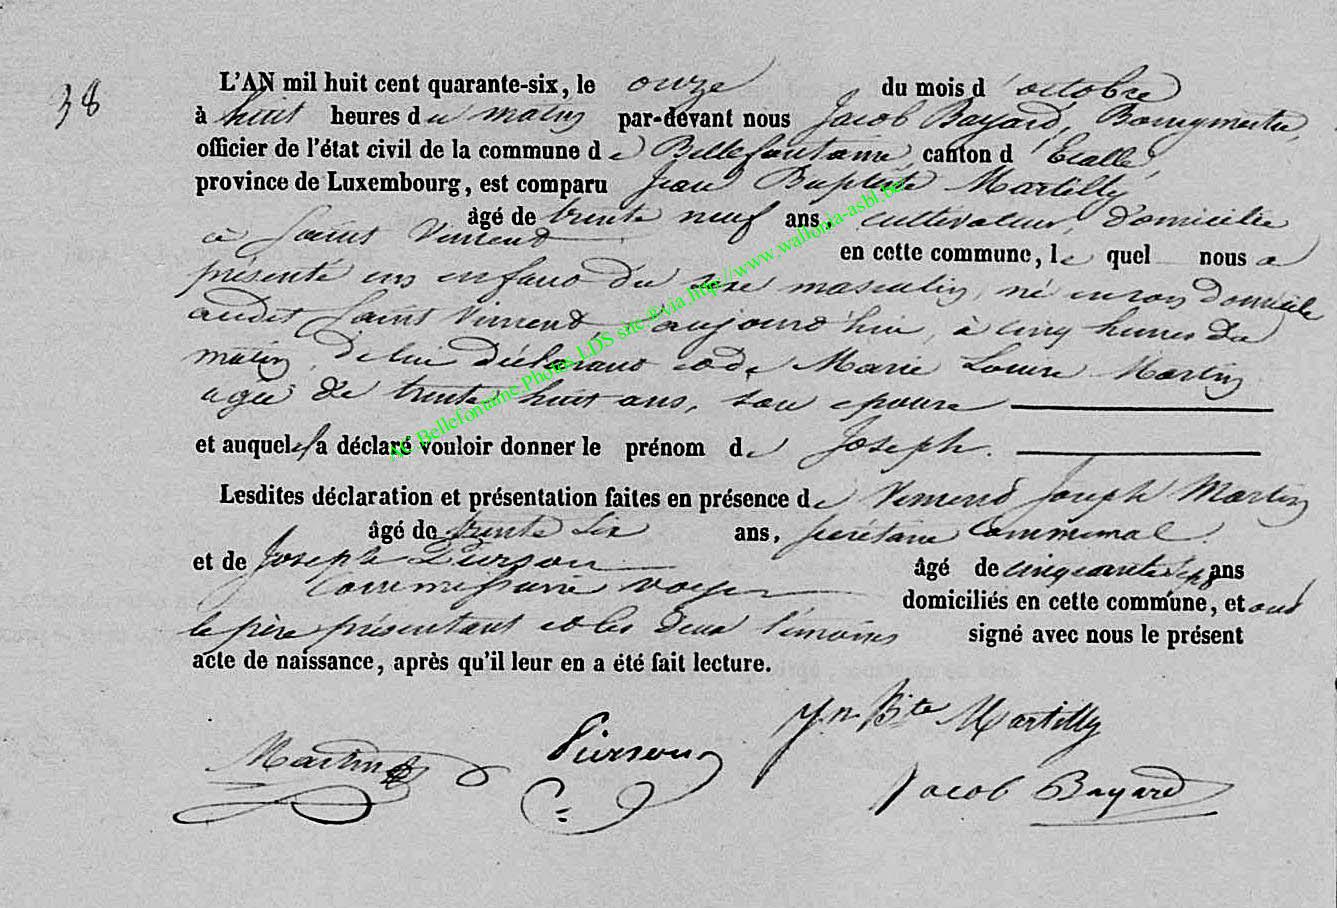 38
L'AN mil huit cent quarante-six, le onze du mois d'octobre
à huit heures du matin par-devant nous Jacob Bayard, Bourgmestre,
officier de l'état civil de la commune de Bellefontaine, canton d'Etalle,
province de Luxembourg, est comparu Jean Baptiste Martilly
âgé de trente neuf ans, cultivateur, domicilié
à Saint Vincent en cette commune, lequel nous a
présenté un enfant du sexe masculin, né en son domicile
audit Saint Vincent, aujourd'hui, à cinq heures du
matin, de lui déclarant et de Marie Louise Martin
agée de trente huit ans, son epouse
et auquel il a déclaré vouloir donner le prénom de Joseph.
Lesdites déclaration et présentation faites en présence de Vincent Joseph Martin
âgé de trente six ans, secrétaire communal
et de Joseph Pierson âgé de cinquante sept ans
commissaire voyer domiciliés en cette commune, et ont
le père présentant et les deux témoins signé avec nous le présent
acte de naissance, après qu'il leur en a été fait lecture.
Jn Bte Martilly
Martin Pierson
Jacob Bayard
AC Bellefontaine Photos LDS site via http://www.wallonia-asbl.be/